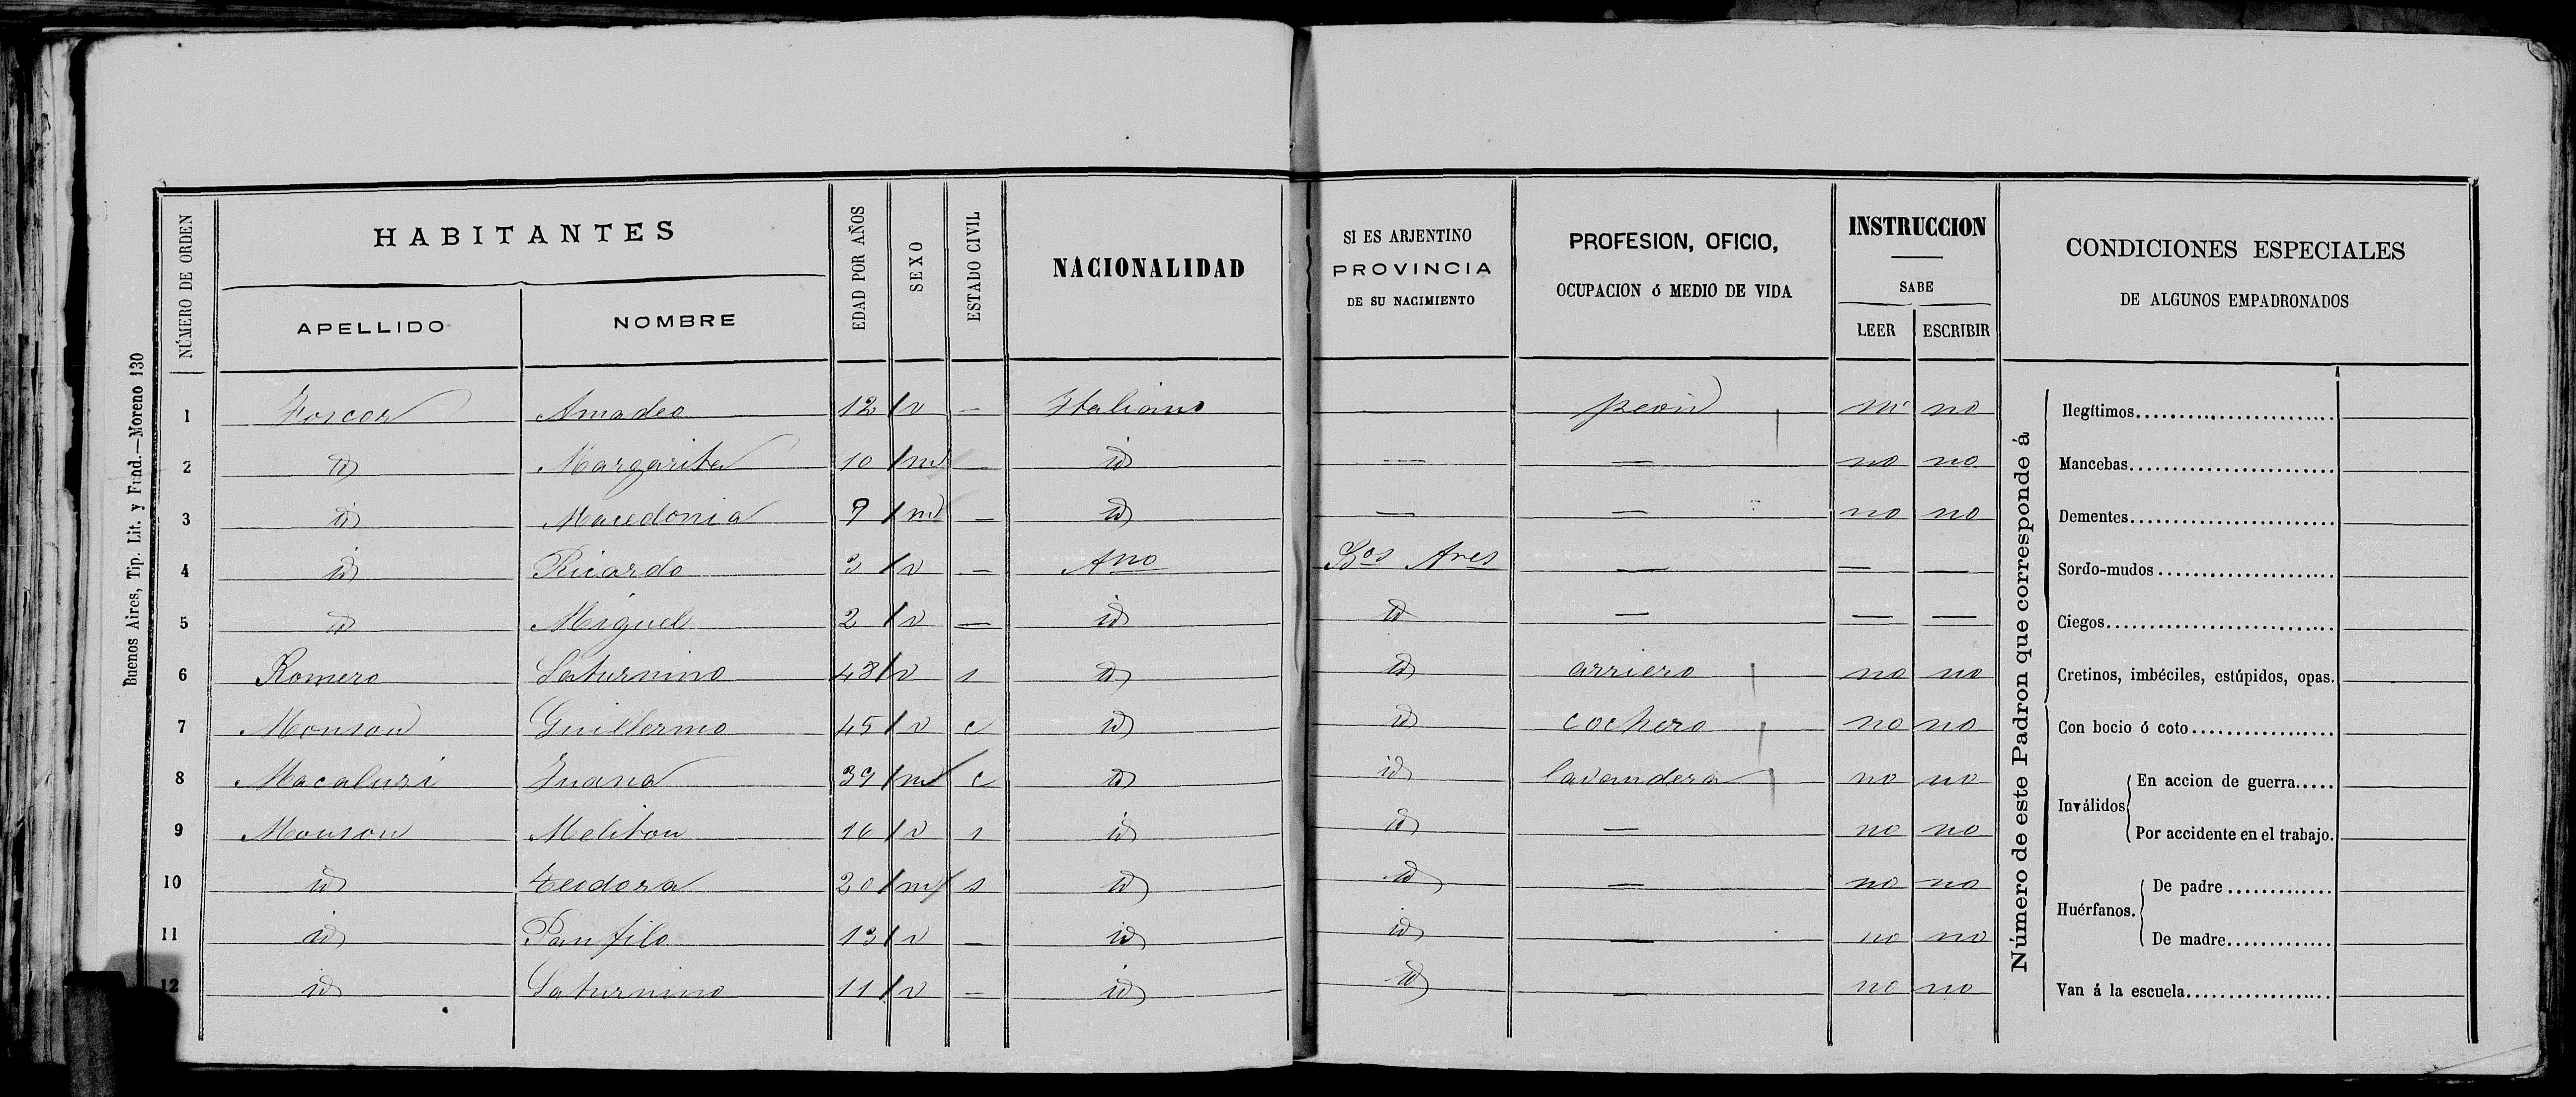 Buenos Aires, Tip. Lit. y Fund.—Moreno 130
NÚMERO DE ORDEN HABITANTES EDAD POR AÑOS SEXO ESTADO CIVIL NACIONALIDAD SI ES ARJENTINO PROVINCIA DE SU NACIMIENTO PROFESION, OFICIO, OCUPACION ó MEDIO DE VIDA INSTRUCCION CONDICIONES ESPECIALES DE ALGUNOS EMPADRONADOS
APELLIDO NOMBRE SABE LEER ESCRIBIR
1 Amadeo 12 v — Italiano — peon no no
2 id Margarita 10 m — id — — no no
3 id Macedonia 9 m — id — — no no
4 id Ricardo 3 v — Ano Bos Ares — — —
5 id Miguel 2 v — id id — — —
6 Romero Saturnino 48 v s id id arriero no no
7 Monson Guillermo 45 v c id id cochero no no
8 Macaluzi Juana 39 m c id id lavandera no no
9 Monson Meliton 16 v s id id — no no
10 id Teodora 20 m s id id — no no
11 id Panfilo 13 v — id id — no no
12 id Saturnino 11 v — id id — no no
Número de este Padron que corresponde á
Ilegítimos
Mancebas
Dementes
Sordo-mudos
Ciegos
Cretinos, imbéciles, estúpidos, opas.
Con bocio ó coto
Inválidos En accion de guerra
Por accidente en el trabajo.
Huérfanos. De padre
De madre
Van á la escuela